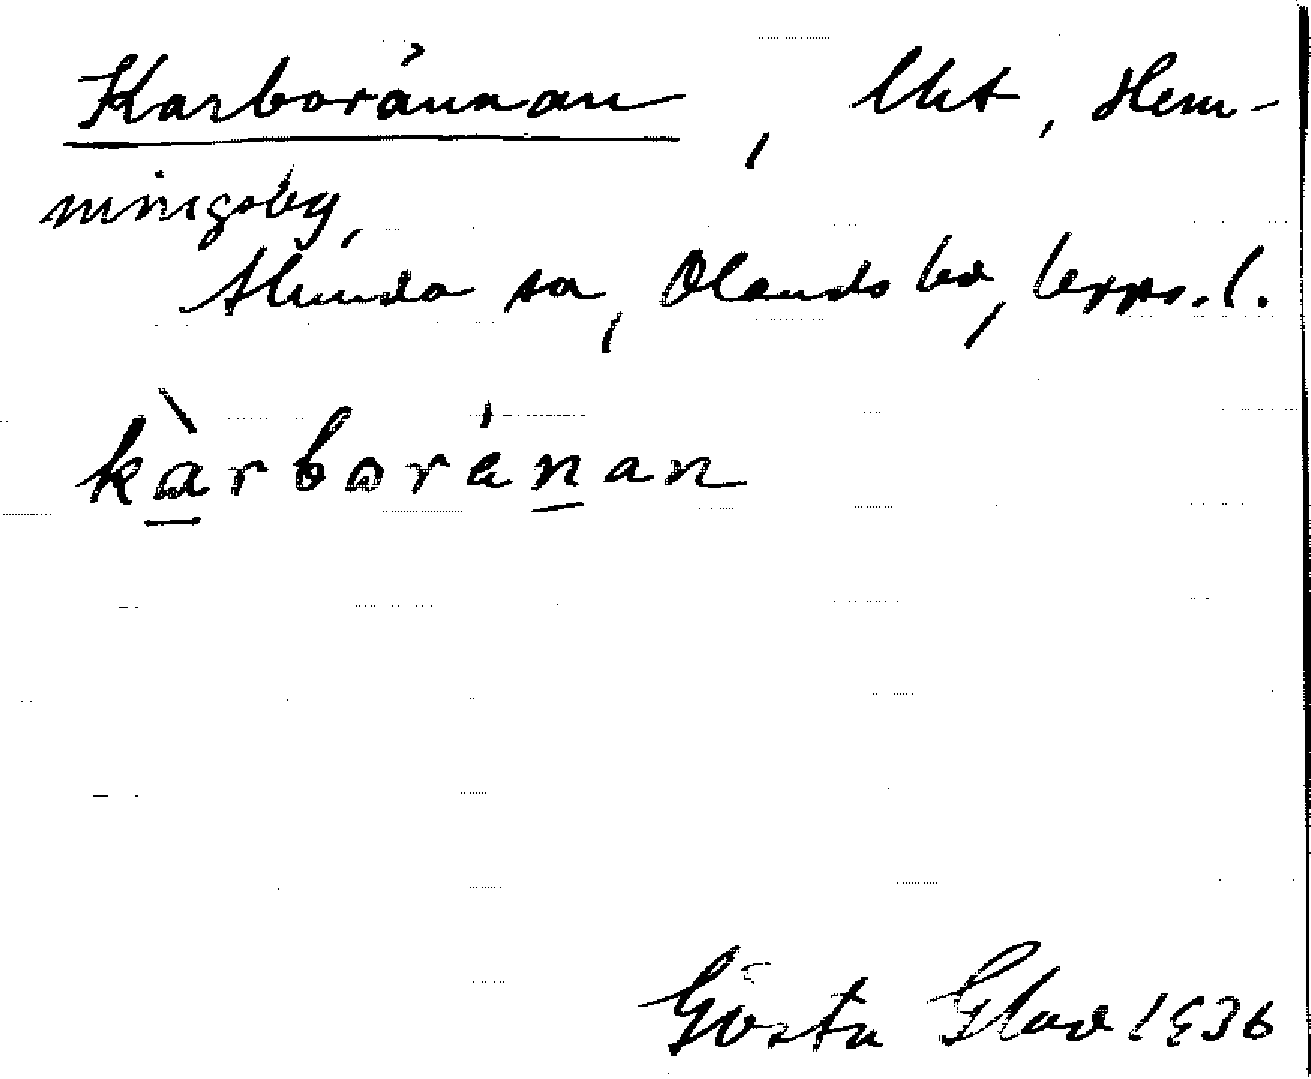 Karborännan, Ukt, Hem-
ningsby,
Alunda sn, Olands hd, Upps. l.
kàrborénan
Gösta Glad 1936